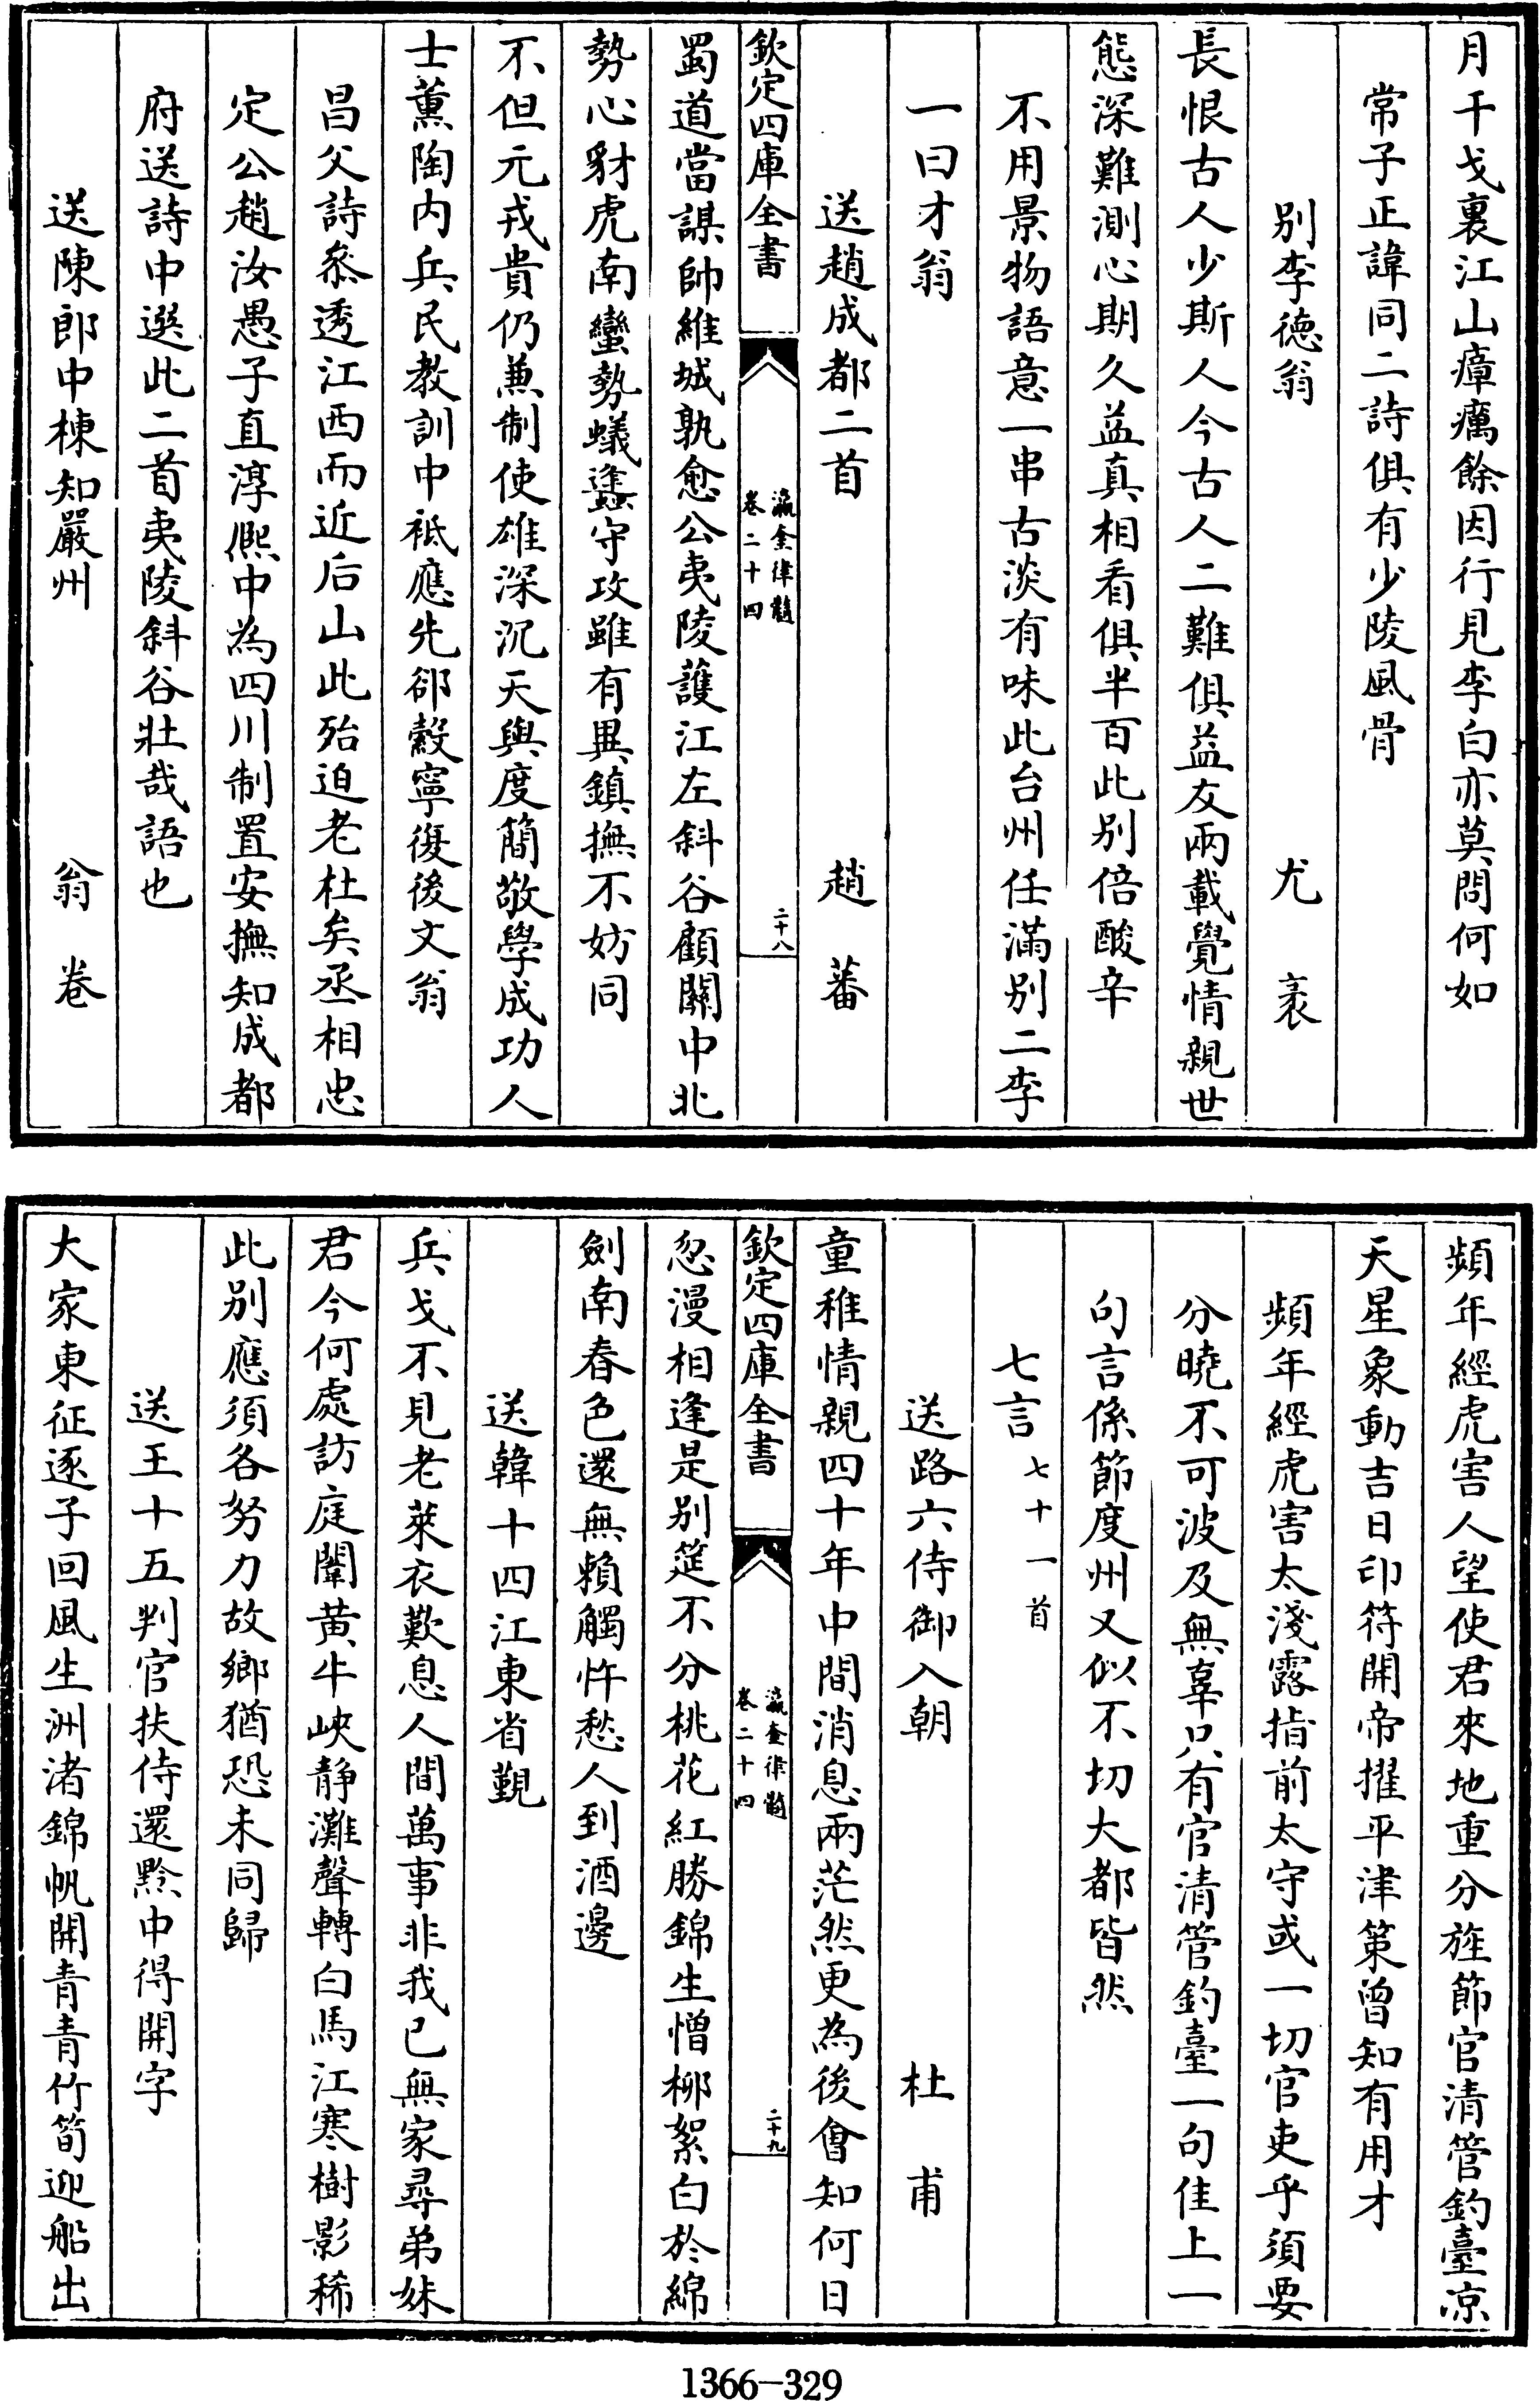 月干戈裏江山瘴癘餘因行見李白亦莫問何如
常子正諱同二詩俱有少陵風骨
别李徳翁 尤袤
長恨古人少斯人今古人二難俱益友兩載覺情親世
態深難測心期久益真相看俱半百此别倍酸辛
不用景物語意一串古淡有味此台州任滿别二李
一曰才翁
送趙成都二首 趙蕃
欽定四庫全書 瀛奎律髓 卷二十四 二十八
蜀道當謀帥維城孰愈公夷陵護江左斜谷顧關中北
勢心豺虎南蠻勢蟻䗬守攻雖有異鎮撫不妨同
不但元戎貴仍兼制使雄深沉天與度簡敬學成功人
士薰陶内兵民教訓中祗應先郤縠寧復後文翁
昌父詩叅透江西而近后山此殆迫老杜矣丞相忠
定公趙汝愚子直淳熈中為四川制置安撫知成都
府送詩中選此二首夷陵斜谷壯哉語也
送陳郎中棟知嚴州 翁卷
頻年經虎害人望使君來地重分旌節官清管釣臺凉
天星象動吉日印符開帝擢平津策曾知有用才
頻年經虎害太淺露指前太守或一切官吏乎須要
分曉不可波及無辜只有官清管釣臺一句佳上一
句言係節度州又似不切大都皆然
七言 七十一首
送路六侍御入朝 杜甫
童稚情親四十年中間消息兩茫然更為後會知何日
欽定四庫全書 瀛奎律髓 卷二十四 二十九
忽漫相逢是别筵不分桃花紅勝錦生憎栁絮白於綿
劍南春色還無賴觸忤愁人到酒邊
送韓十四江東省覲
兵戈不見老萊衣歎息人間萬事非我已無家尋弟妹
君今何處訪庭闈黄牛峽静灘聲轉白馬江寒樹影稀
此别應須各努力故鄉猶恐未同歸
送王十五判官扶侍還黔中得開字
大家東征逐子回風生洲渚錦帆開青青竹筍迎船出
1366-329